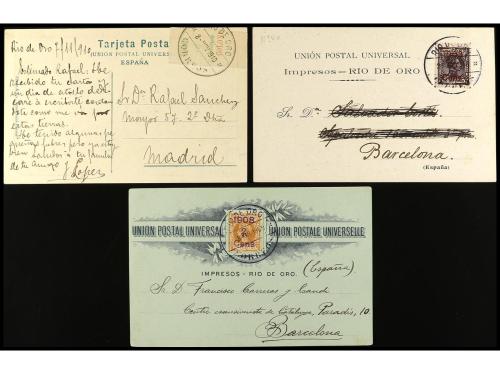 Rio de Oro 7/11/910
Estimado Rafael: He
recibido tu carta
un dia de
escribirte
como me va por
estas tierras.
He tenido algunas
fiebres pero ya estoy
bien Saludos a tu familia
de tu amigo
J. Lopez
Tarjeta Posta
UNION POSTAL UNIVERSAL
ESPAÑA
RIO DE ORO
Sr Dn Rafael Sanchez
Mayor 57. 2º Dha
Madrid
UNIÓN POSTAL UNIVERSAL
Impresos – RIO DE ORO
Sr. Dn.
Barcelona.
(España)
UNION POSTAL UNIVERSAL
1908
UNION POSTALE UNIVERSELLE
IMPRESOS - RIO DE ORO.
(España)
Sr. D. Francisco Carreras y Candi
Centro excursionista de Cataluña, Paradís, 10
Barcelona